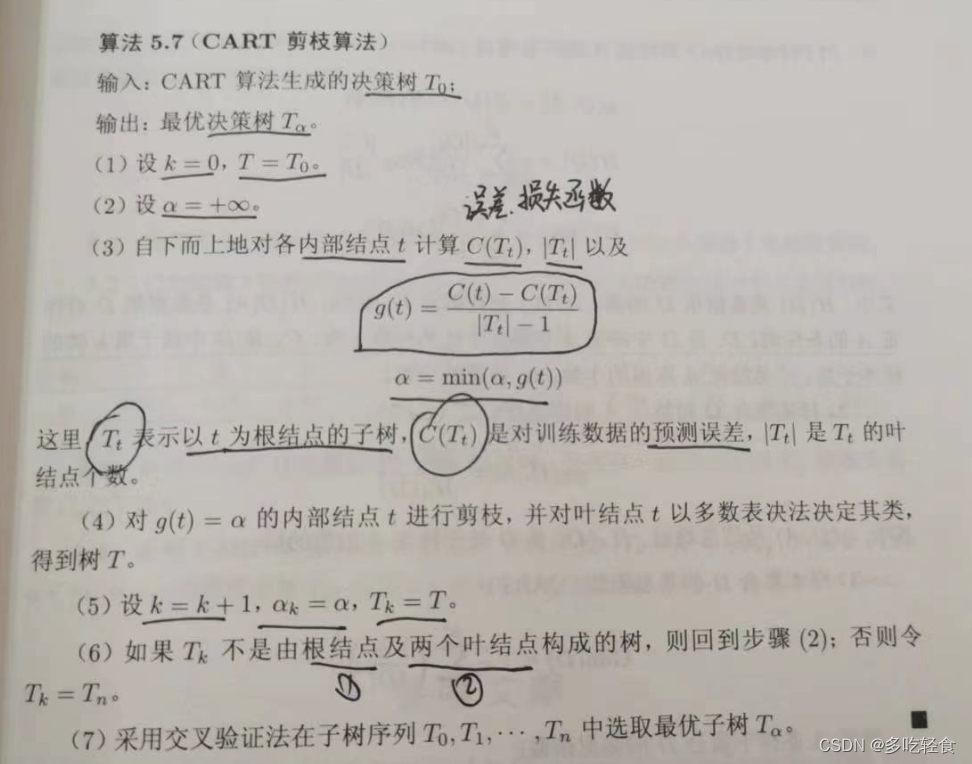 算法 5.7（CART 剪枝算法）
输入：CART 算法生成的决策树 T₀；
输出：最优决策树 Tα。
（1）设 k = 0，T = T₀。
（2）设 α = +∞。
误差.损失函数
（3）自下而上地对各内部结点 t 计算 C(Tₜ)，|Tₜ| 以及
g(t) = (C(t) − C(Tₜ)) / (|Tₜ| − 1)
α = min(α, g(t))
这里，Tₜ 表示以 t 为根结点的子树，C(Tₜ) 是对训练数据的预测误差，|Tₜ| 是 Tₜ 的叶
结点个数。
（4）对 g(t) = α 的内部结点 t 进行剪枝，并对叶结点 t 以多数表决法决定其类，
得到树 T。
（5）设 k = k + 1，αₖ = α，Tₖ = T。
（6）如果 Tₖ 不是由根结点及两个叶结点构成的树，则回到步骤（2）；否则令
① ②
Tₖ = Tₙ。
（7）采用交叉验证法在子树序列 T₀, T₁, ⋯, Tₙ 中选取最优子树 Tα。 ■
CSDN @多吃轻食